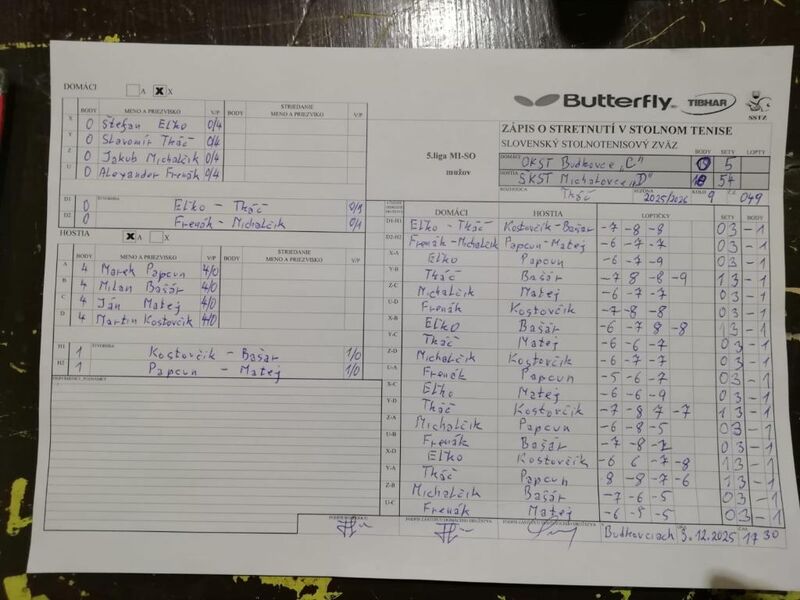 DOMÁCI A X X
BODY MENO A PRIEZVISKO V/P BODY STRIEDANIE MENO A PRIEZVISKO V/P
X 0 Štefan Eľko 0/4
Y 0 Slavomír Tkáč 0/4
Z 0 Jakub Michalčík 0/4
U 0 Alexander Frenák 0/4
ŠTVORHRA
D1 0 Eľko - Tkáč 0/1
D2 0 Frenák - Michalčík 0/1
HOSTIA X A X
BODY MENO A PRIEZVISKO V/P BODY STRIEDANIE MENO A PRIEZVISKO V/P
A 4 Marek Papcun 4/0
B 4 Milan Bašár 4/0
C 4 Ján Matej 4/0
D 4 Martin Kostovčík 4/0
ŠTVORHRA
H1 1 Kostovčík - Bašar 1/0
H2 1 Papcun - Matej 1/0
PRIPOMIENKY, POZNÁMKY
Butterfly TIBHAR SSTZ
5.liga MI-SO
mužov
ZÁPIS O STRETNUTÍ V STOLNOM TENISE
SLOVENSKÝ STOLNOTENISOVÝ ZVÄZ
BODY SETY LOPTY
DOMÁCI OKST Budkovce „C" 0 5
HOSTIA SKST Michalovce „D" 18 54
ROZHODCA Tkáč SEZÓNA 2025/2026 KOLO 9 Č.Z. 049
DOMÁCI HOSTIA LOPTIČKY SETY BODY
D1-H1 Eľko - Tkáč Kostovčík-Bašar -7 -8 -8 0 3 - 1
D2-H2 Frenák-Michalčík Papcun-Matej -6 -7 -7 0 3 - 1
X-A Eľko Papcun -6 -7 -9 0 3 - 1
Y-B Tkáč Bašár -7 8 -8 -9 1 3 - 1
Z-C Michalčík Matej -6 -7 -7 0 3 - 1
U-D Frenák Kostovčík -7 -8 -8 0 3 - 1
X-B Eľko Bašár -6 -7 8 -8 1 3 - 1
Y-C Tkáč Matej -6 -6 -7 0 3 - 1
Z-D Michalčík Kostovčík -6 -7 -7 0 3 - 1
U-A Frenák Papcun -5 -6 -7 0 3 - 1
X-C Eľko Matej -6 -6 -9 0 3 - 1
Y-D Tkáč Kostovčík -7 -8 7 -7 1 3 - 1
Z-A Michalčík Papcun -6 -8 -5 0 3 - 1
U-B Frenák Bašár -7 -8 0 3 - 1
X-D Eľko Kostovčík -6 6 -7 -8 1 3 - 1
Y-A Tkáč Papcun 8 -8 -7 -6 1 3 - 1
Z-B Michalčík Bašár -7 -6 -5 0 3 - 1
U-C Frenák Matej -6 -5 -5 0 3 - 1
PODPIS ROZHODCU PODPIS ZÁSTUPCU DOMÁCEHO DRUŽSTVA PODPIS ZÁSTUPCU HOSŤUJÚCEHO DRUŽSTVA
Budkovciach 3.12.2025 17 30